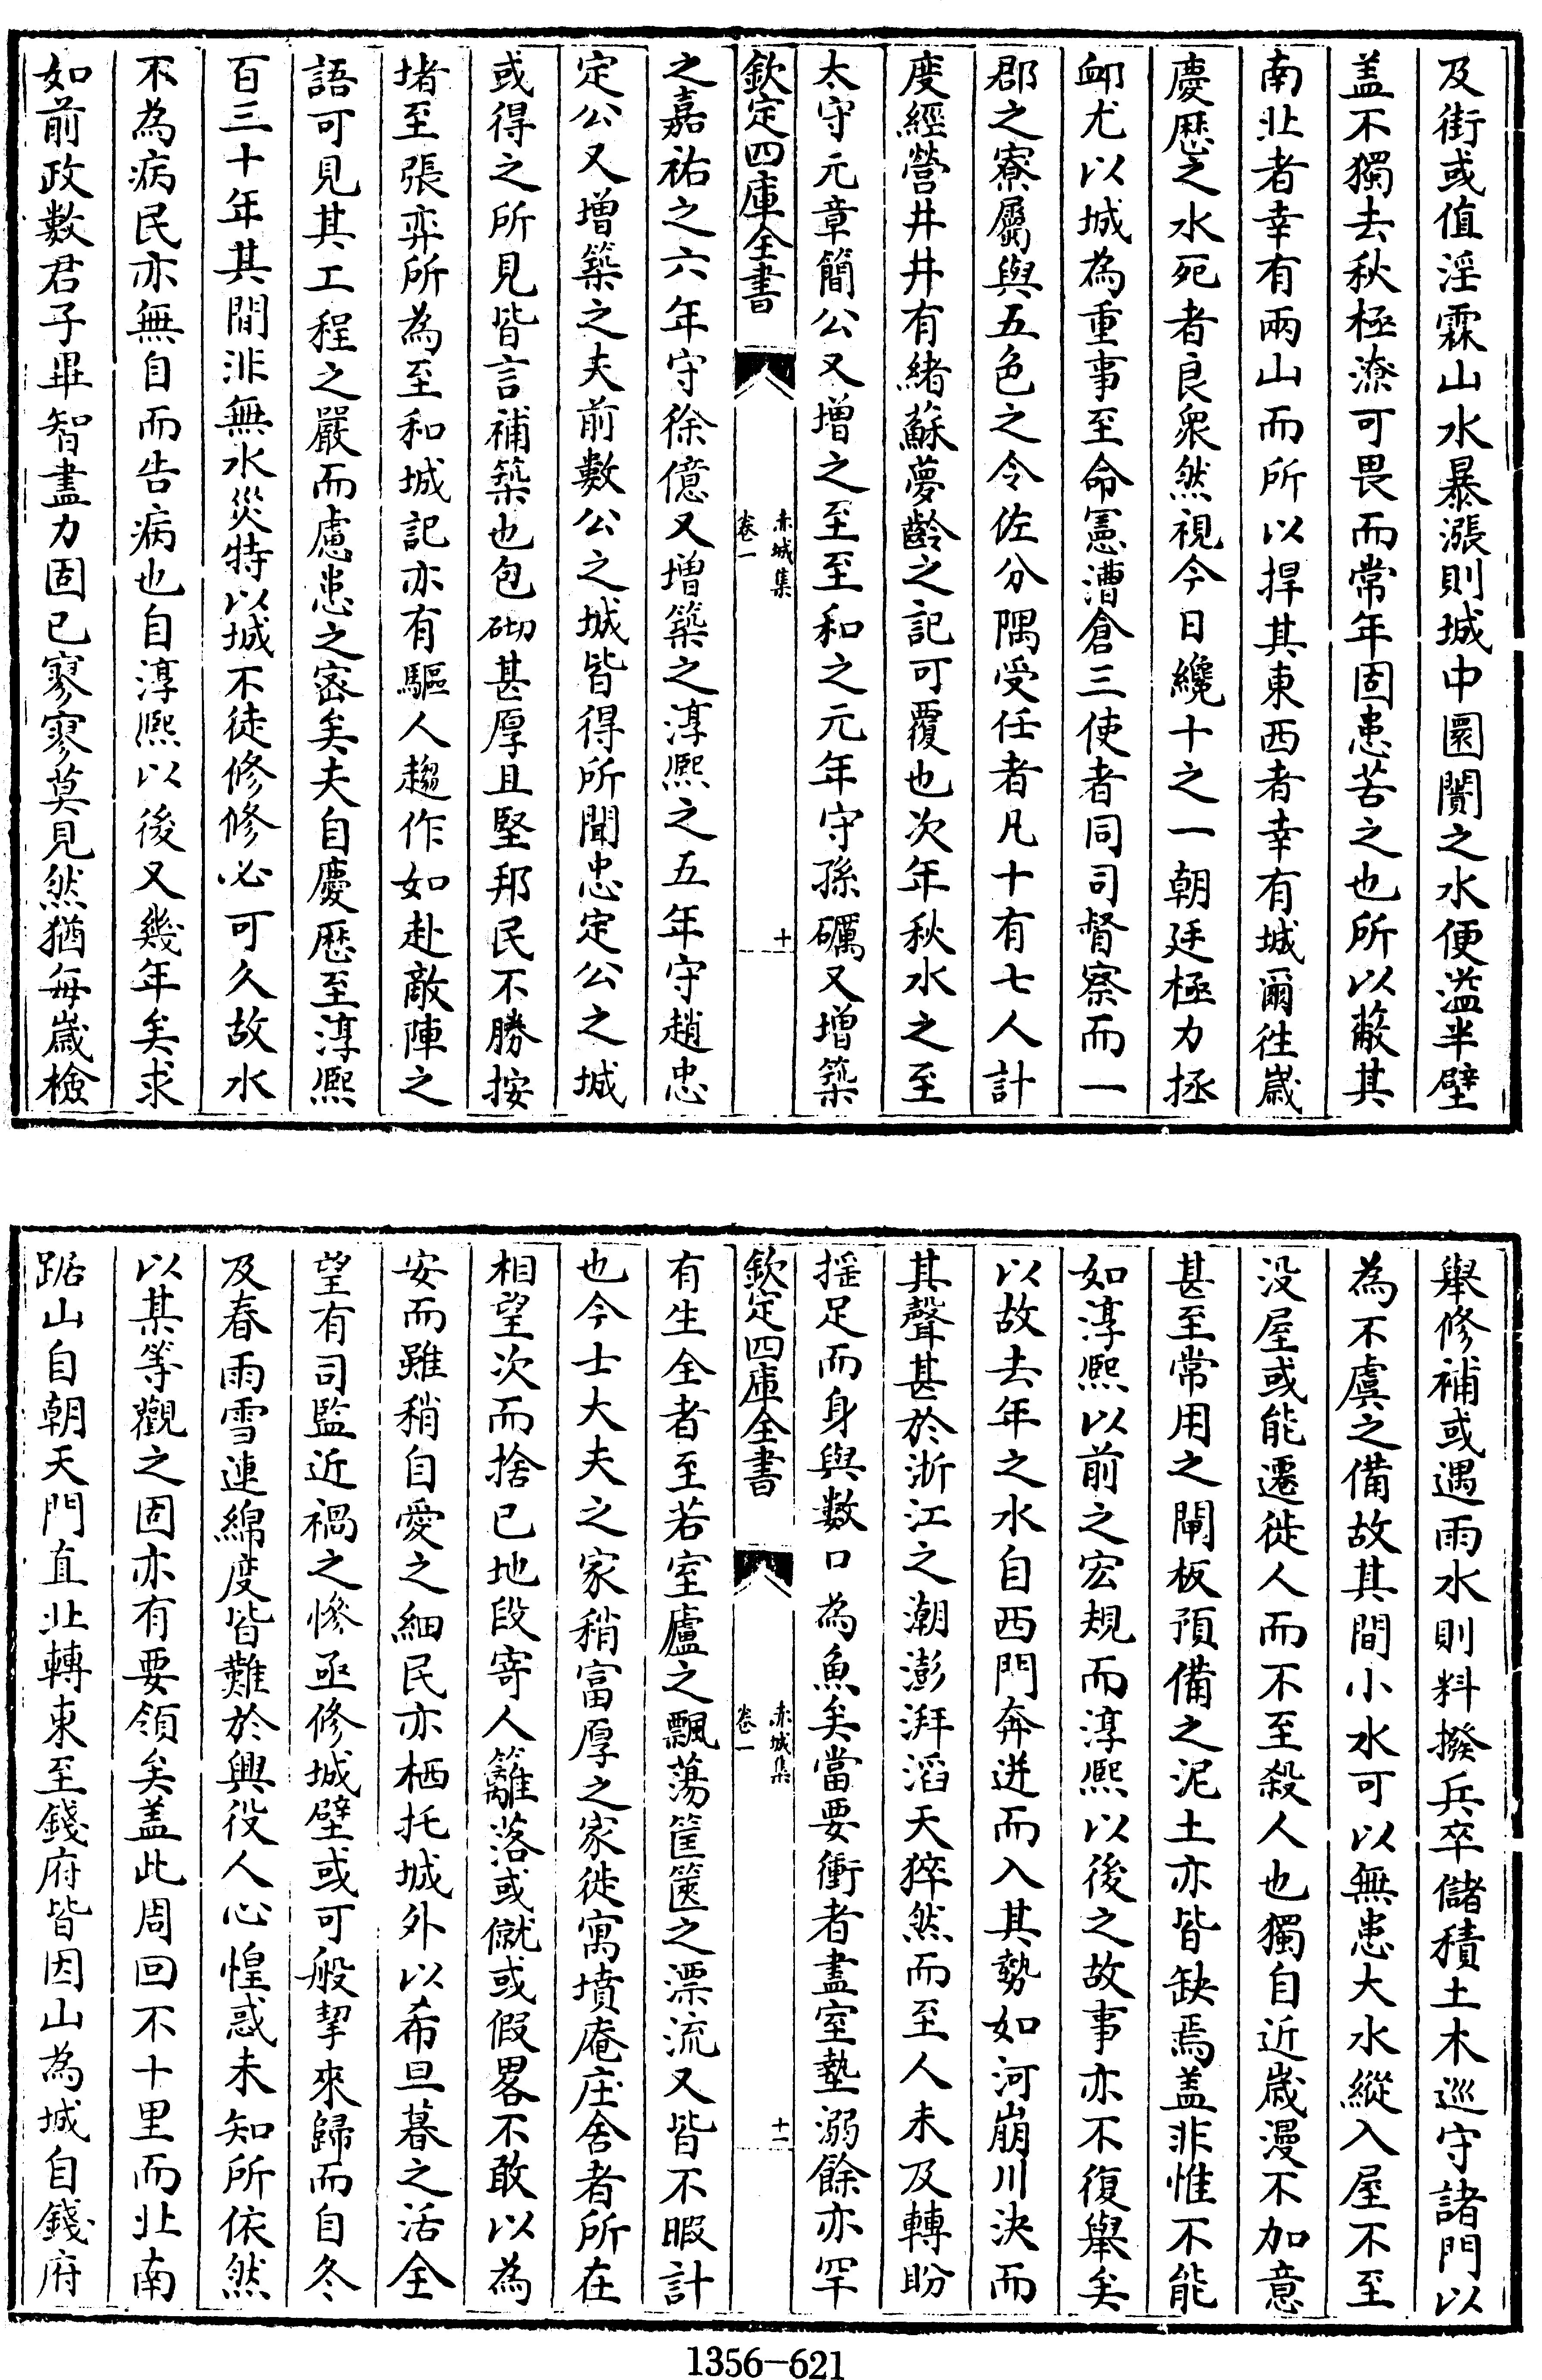 及街或值淫霖山水暴漲則城中圜闠之水便溢半壁
盖不獨去秋極潦可畏而常年固患苦之也所以蔽其
南北者幸有兩山而所以捍其東西者幸有城爾徃歲
慶歴之水死者良衆然視今日纔十之一朝廷極力拯
䘏尤以城為重事至命憲漕倉三使者同司督察而一
郡之寮屬與五色之令佐分隅受任者凡十有七人計
度經營井井有緒蘇夢齡之記可覆也次年秋水之至
太守元章簡公又增之至至和之元年守孫礪又增築
欽定四庫全書
赤城集
卷一
十
之嘉祐之六年守徐億又増築之淳熙之五年守趙忠
定公又增築之夫前數公之城皆得所聞忠定公之城
或得之所見皆言補築也包砌甚厚且堅邦民不勝按
堵至張弈所為至和城記亦有驅人趨作如赴敵陣之
語可見其工程之嚴而慮患之宻矣夫自慶歴至淳熙
百三十年其間非無水災特以城不徒修修必可久故水
不為病民亦無自而告病也自淳熙以後又幾年矣求
如前政數君子畢智盡力固已寥寥莫見然猶每歲檢
舉修補或遇雨水則料撥兵卒儲積土木巡守諸門以
為不虞之備故其間小水可以無患大水縱入屋不至
没屋或能遷徙人而不至殺人也獨自近歲漫不加意
甚至常用之閘板預備之泥土亦皆缺焉盖非惟不能
如淳熙以前之宏規而淳熙以後之故事亦不復舉矣
以故去年之水自西門奔迸而入其勢如河崩川決而
其聲甚於浙江之潮澎湃滔天猝然而至人未及轉盼
揺足而身與數口為魚矣當要衝者盡室墊溺餘亦罕
欽定四庫全書
赤城集
卷一
十一
有生全者至若室廬之飄蕩筐篋之漂流又皆不暇計
也今士大夫之家稍富厚之家徙寓墳庵庄舍者所在
相望次而捨已地段寄人籬落或僦或假畧不敢以為
安而雖稍自愛之細民亦栖托城外以希旦暮之活全
望有司監近禍之慘亟修城壁或可般挈來歸而自冬
及春雨雪連綿度皆難於興役人心惶惑未知所依然
以某等觀之固亦有要領矣盖此周回不十里而北南
踞山自朝天門直北轉東至錢府皆因山為城自錢府
1356-621